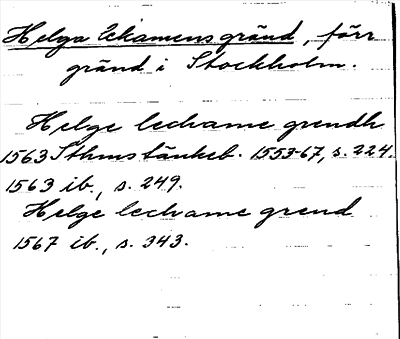 Helga Lekamens gränd, förr
gränd i Stockholm.
Helge lechame grendh
1563 Sthms tänkeb. 1553-67, s. 224.
1563 ib., s. 249.
Helge lechame grend
1567 ib., s. 343.